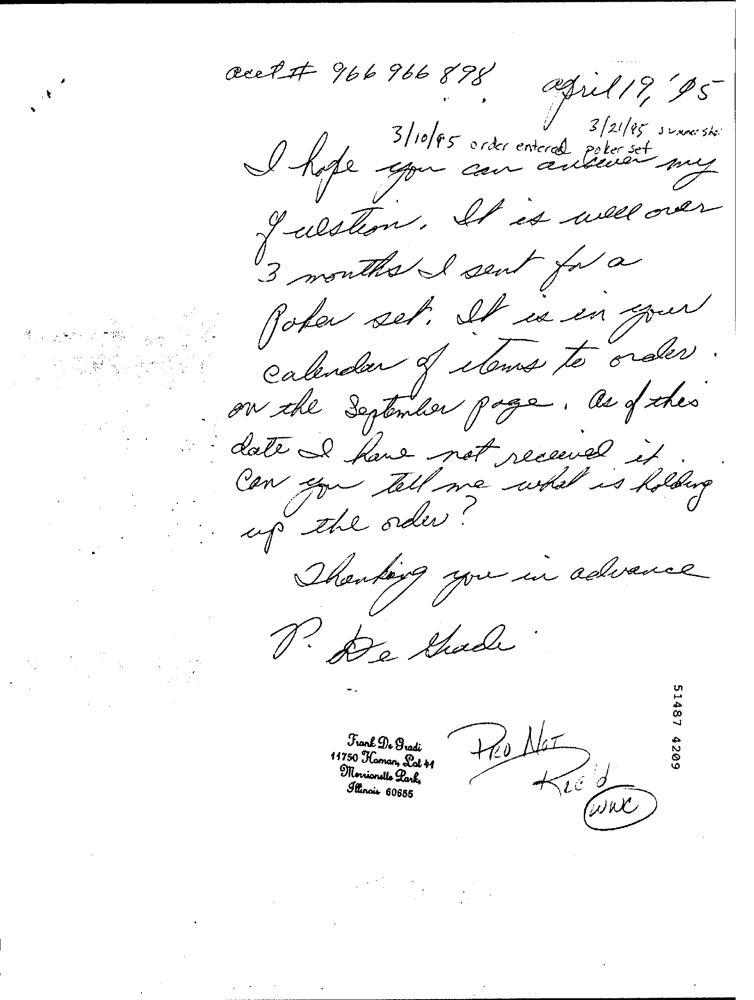 acct # 966 966 898
april 19, '95
3/10/95 order entered
3/21/95
poker set
I hope you can answer my
question. It is well over
3 months I sent for a
Poker set. It is in your
calendar of items to order.
on the September page. As of this
date I have not received it.
Can you tell me what is holding
up the order?
Thanking you in advance
P. De Gradi
Frank De Gradi
11750 Homan, Lot 41
Merrionette Park,
Illinois 60655
PRO NOT
Rec'd
WWC
51487 4209